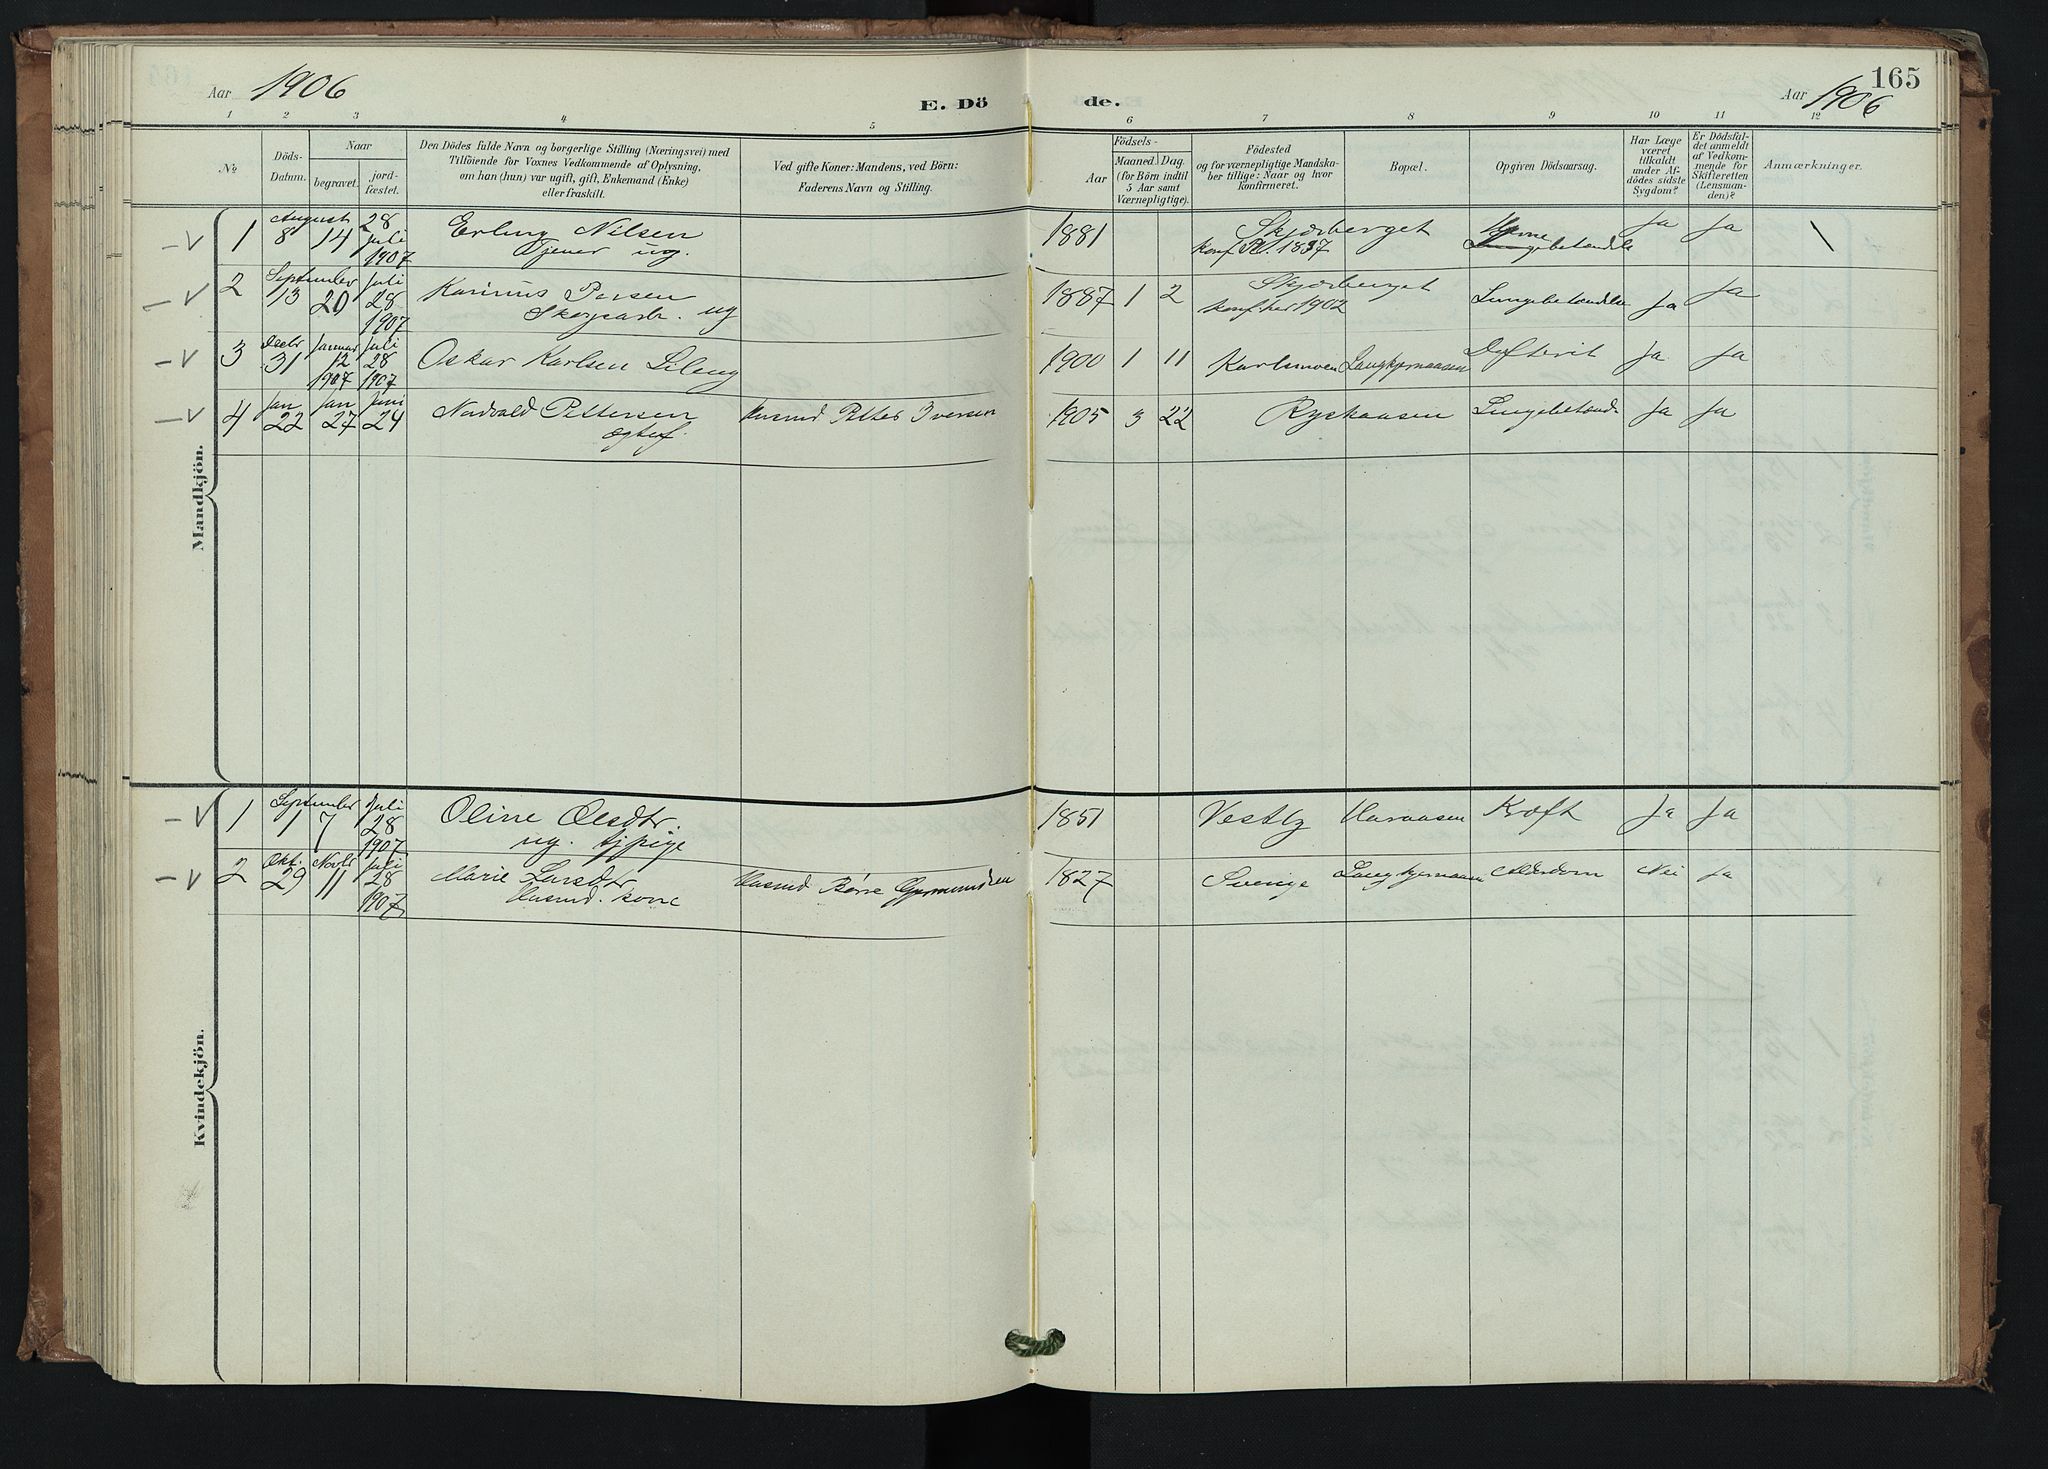 Aar 1906
E. Dö
de.
165
Aar 1906
1 2 3 4 5 6 7 8 9 10 11 12
No
Döds-
Datum.
Naar
begravet.
jord-
fæstet.
Den Dödes fulde Navn og borgerlige Stilling (Næringsvei) med
Tilföiende for Voxnes Vedkommende af Oplysning,
om han (hun) var ugift, gift, Enkemand (Enke)
eller fraskilt.
Ved gifte Koner: Mandens, ved Börn:
Faderens Navn og Stilling.
Födsels-
Aar
Maaned. Dag.
(for Börn indtil
5 Aar samt
Værnepligtige).
Födested
og for værnepligtige Mandska-
ber tillige: Naar og hvor
konfirmeret.
Bopæl.
Opgiven Dödsaarsag.
Har Læge
været
tilkaldt
under Af-
dödes sidste
Sygdom?
Er Dödsfal-
det anmeldt
af Vedkom-
mende for
Skifteretten
(Lensman-
den)?
Anmærkninger.
Mandkjön.
1 August 8 14 28 Juli 1907 Erling Nilsen 1881 Skjærberget Hjerne Ja Ja
Tjener ug. konf. 1897 betændelse
2 September 13 20 Juli 28 1907 Karinus Persen 1887 1 2 Skjærberget Lungebetændelse Ja Ja
Skogsarb. ug konf. her 1902
3 Decbr 31 Januar 12 1907 Juli 28 1907 Oskar Karlsen Lileng 1900 1 11 Karlsmoen Langkjernaasen Dyfterit Ja Ja
4 Jan 22 Jan 27 Juni 24 Nordvald Pettersen Husmd Petter Iversen 1905 3 22 Ryskaasen Lungebetænd. Ja Ja
ægtef.
Kvindekjön.
1 September 1 7 Juli 28 1907 Oline Olsdtr. 1851 Vestby Haraasen Kræft Ja Ja
ug. tjpige
2 Okt. 29 Novbr 11 Juli 28 1907 Marie Larsdtr Husmd Börre Gjermundsen 1827 Sverige Langkjernaasen Alderdom Nei Ja
Husmd. kone